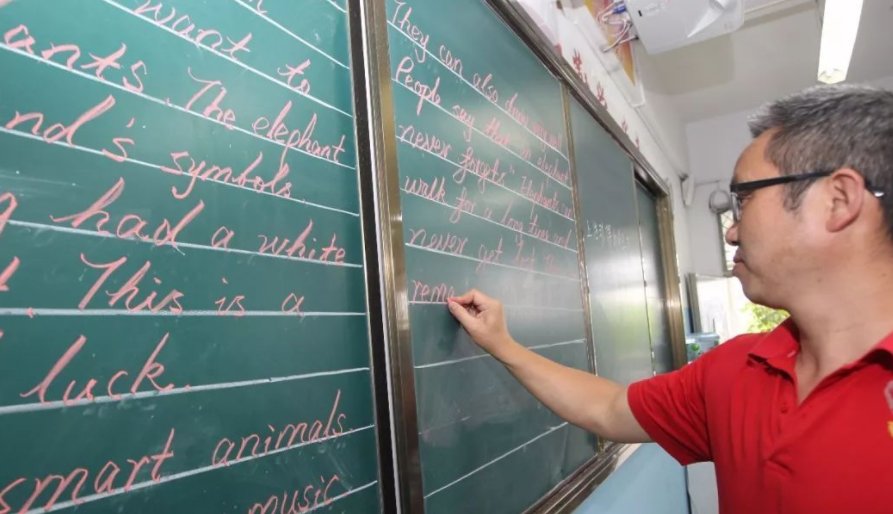 want to
ants. The elephant
nd's symbols.
had a white
. This is a
luck.
smart animals.
music
They can also draw very well.
People say that "an elephant
never forgets". Elephants can
walk for a long time and
never get lost. They
reme